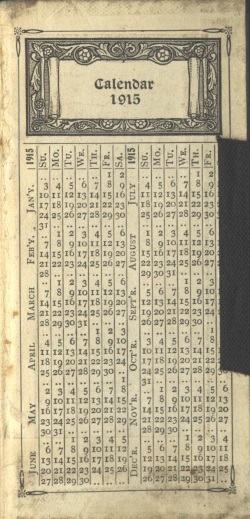 Calendar
1915
1915 SU. MO. TU. WE. TH. FR. SA.
JAN'Y.
.. .. .. .. .. 1 2
3 4 5 6 7 8 9
10 11 12 13 14 15 16
17 18 19 20 21 22 23
24 25 26 27 28 29 30
31 .. .. .. .. .. ..
FEB'Y.
.. 1 2 3 4 5 6
7 8 9 10 11 12 13
14 15 16 17 18 19 20
21 22 23 24 25 26 27
28 .. .. .. .. .. ..
MARCH
.. 1 2 3 4 5 6
7 8 9 10 11 12 13
14 15 16 17 18 19 20
21 22 23 24 25 26 27
28 29 30 31 .. .. ..
APRIL
.. .. .. .. 1 2 3
4 5 6 7 8 9 10
11 12 13 14 15 16 17
18 19 20 21 22 23 24
25 26 27 28 29 30 ..
MAY
.. .. .. .. .. .. 1
2 3 4 5 6 7 8
9 10 11 12 13 14 15
16 17 18 19 20 21 22
23 24 25 26 27 28 29
30 31 .. .. .. .. ..
JUNE
.. .. 1 2 3 4 5
6 7 8 9 10 11 12
13 14 15 16 17 18 19
20 21 22 23 24 25 26
27 28 29 30 .. .. ..
1915 SU. MO. TU. WE. TH. FR.
JULY
.. .. .. .. 1 2
4 5 6 7 8 9
11 12 13 14 15 16
18 19 20 21 22 23
25 26 27 28 29 30
AUGUST
1 2 3 4 5 6
8 9 10 11 12 13
15 16 17 18 19 20
22 23 24 25 26 27
29 30 31 .. .. ..
SEPT'R.
.. .. .. 1 2 3
5 6 7 8 9 10
12 13 14 15 16 17
19 20 21 22 23 24
26 27 28 29 30 ..
OCT'R.
.. .. .. .. .. 1
3 4 5 6 7 8
10 11 12 13 14 15
17 18 19 20 21 22
24 25 26 27 28 29
31 .. .. .. .. ..
NOV'R.
.. 1 2 3 4 5
7 8 9 10 11 12
14 15 16 17 18 19
21 22 23 24 25 26
28 29 30 .. .. ..
DEC'R.
.. .. .. 1 2 3
5 6 7 8 9 10
12 13 14 15 16 17
19 20 21 22 23 24
26 27 28 29 30 31